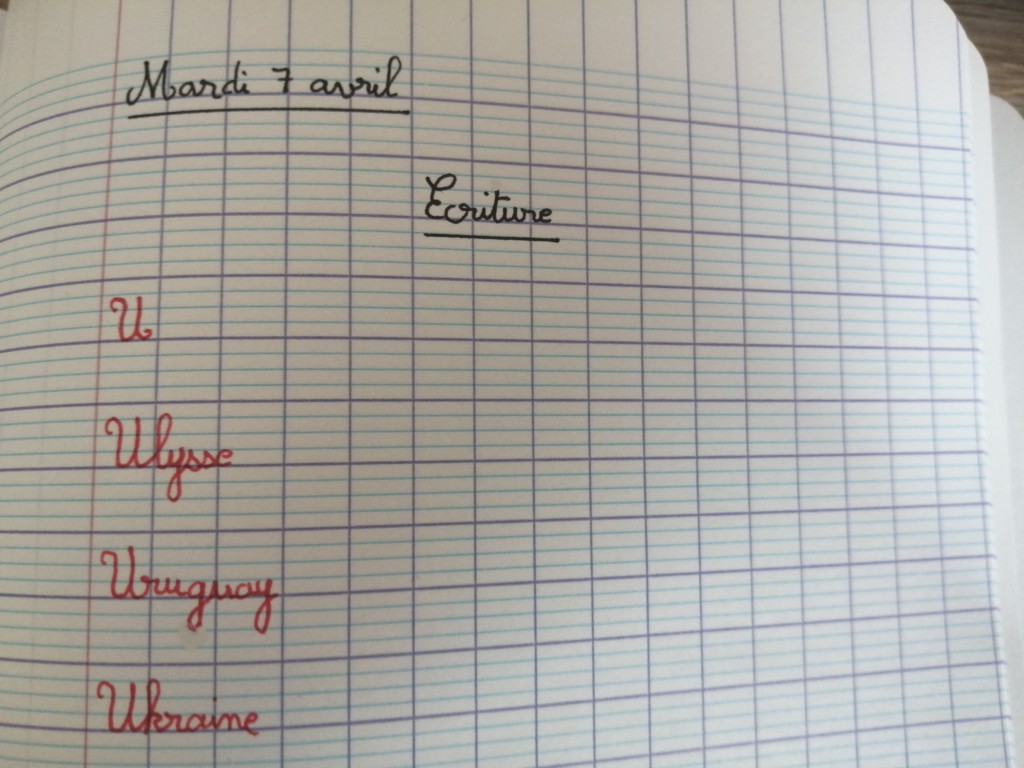 Mardi 7 avril
Ecriture
U
Ulysse
Uruguay
Ukraine